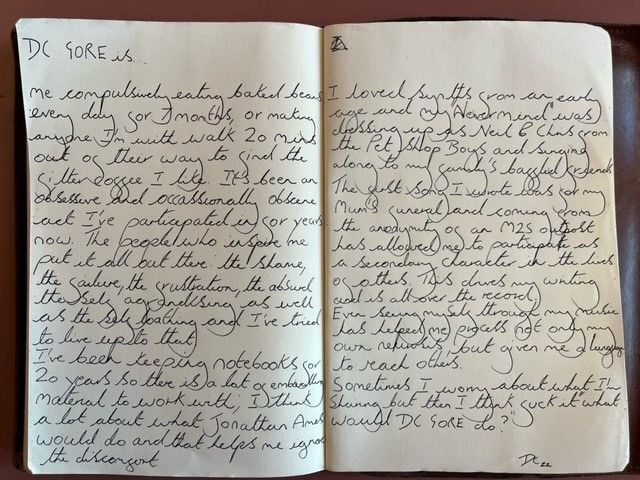 DC GORE is...
me compulsively eating baked beans
every day for 7 months, or making
anyone I'm with walk 20 mins
out of their way to find the
filter coffee I like. It's been an
obsessive and occassionally obscene
act I've participated in for years
now. The people who inspire me
put it all out there: the shame,
the failure, the frustration, the absurd
the self agrandising as well
as the self loathing and I've tried
to live up to that
I've been keeping notebooks for
20 years so there is a lot of embarrassing
material to work with, I think
a lot about what Jonathan Ames
would do and that helps me ignore
the discomfort
I loved synths from an early
age and my "Nevermind" was
dressing up as Neil & Chris from
the Pet Shop Boys and singing
along to my family's baffled friends
The first song I wrote was for my
Mum's funeral and coming from
the anonymity of an M25 outpost
has allowed me to participate as
a secondary character in the lives
of others. This drives my writing
and is all over the record,
Even seeing myself through my music
has helped me process not only my
own neuroses, but given me a language
to reach others.
Sometimes I worry about what I'm
sharing but then I think fuck it "what
would DC GORE do?"
DC 22